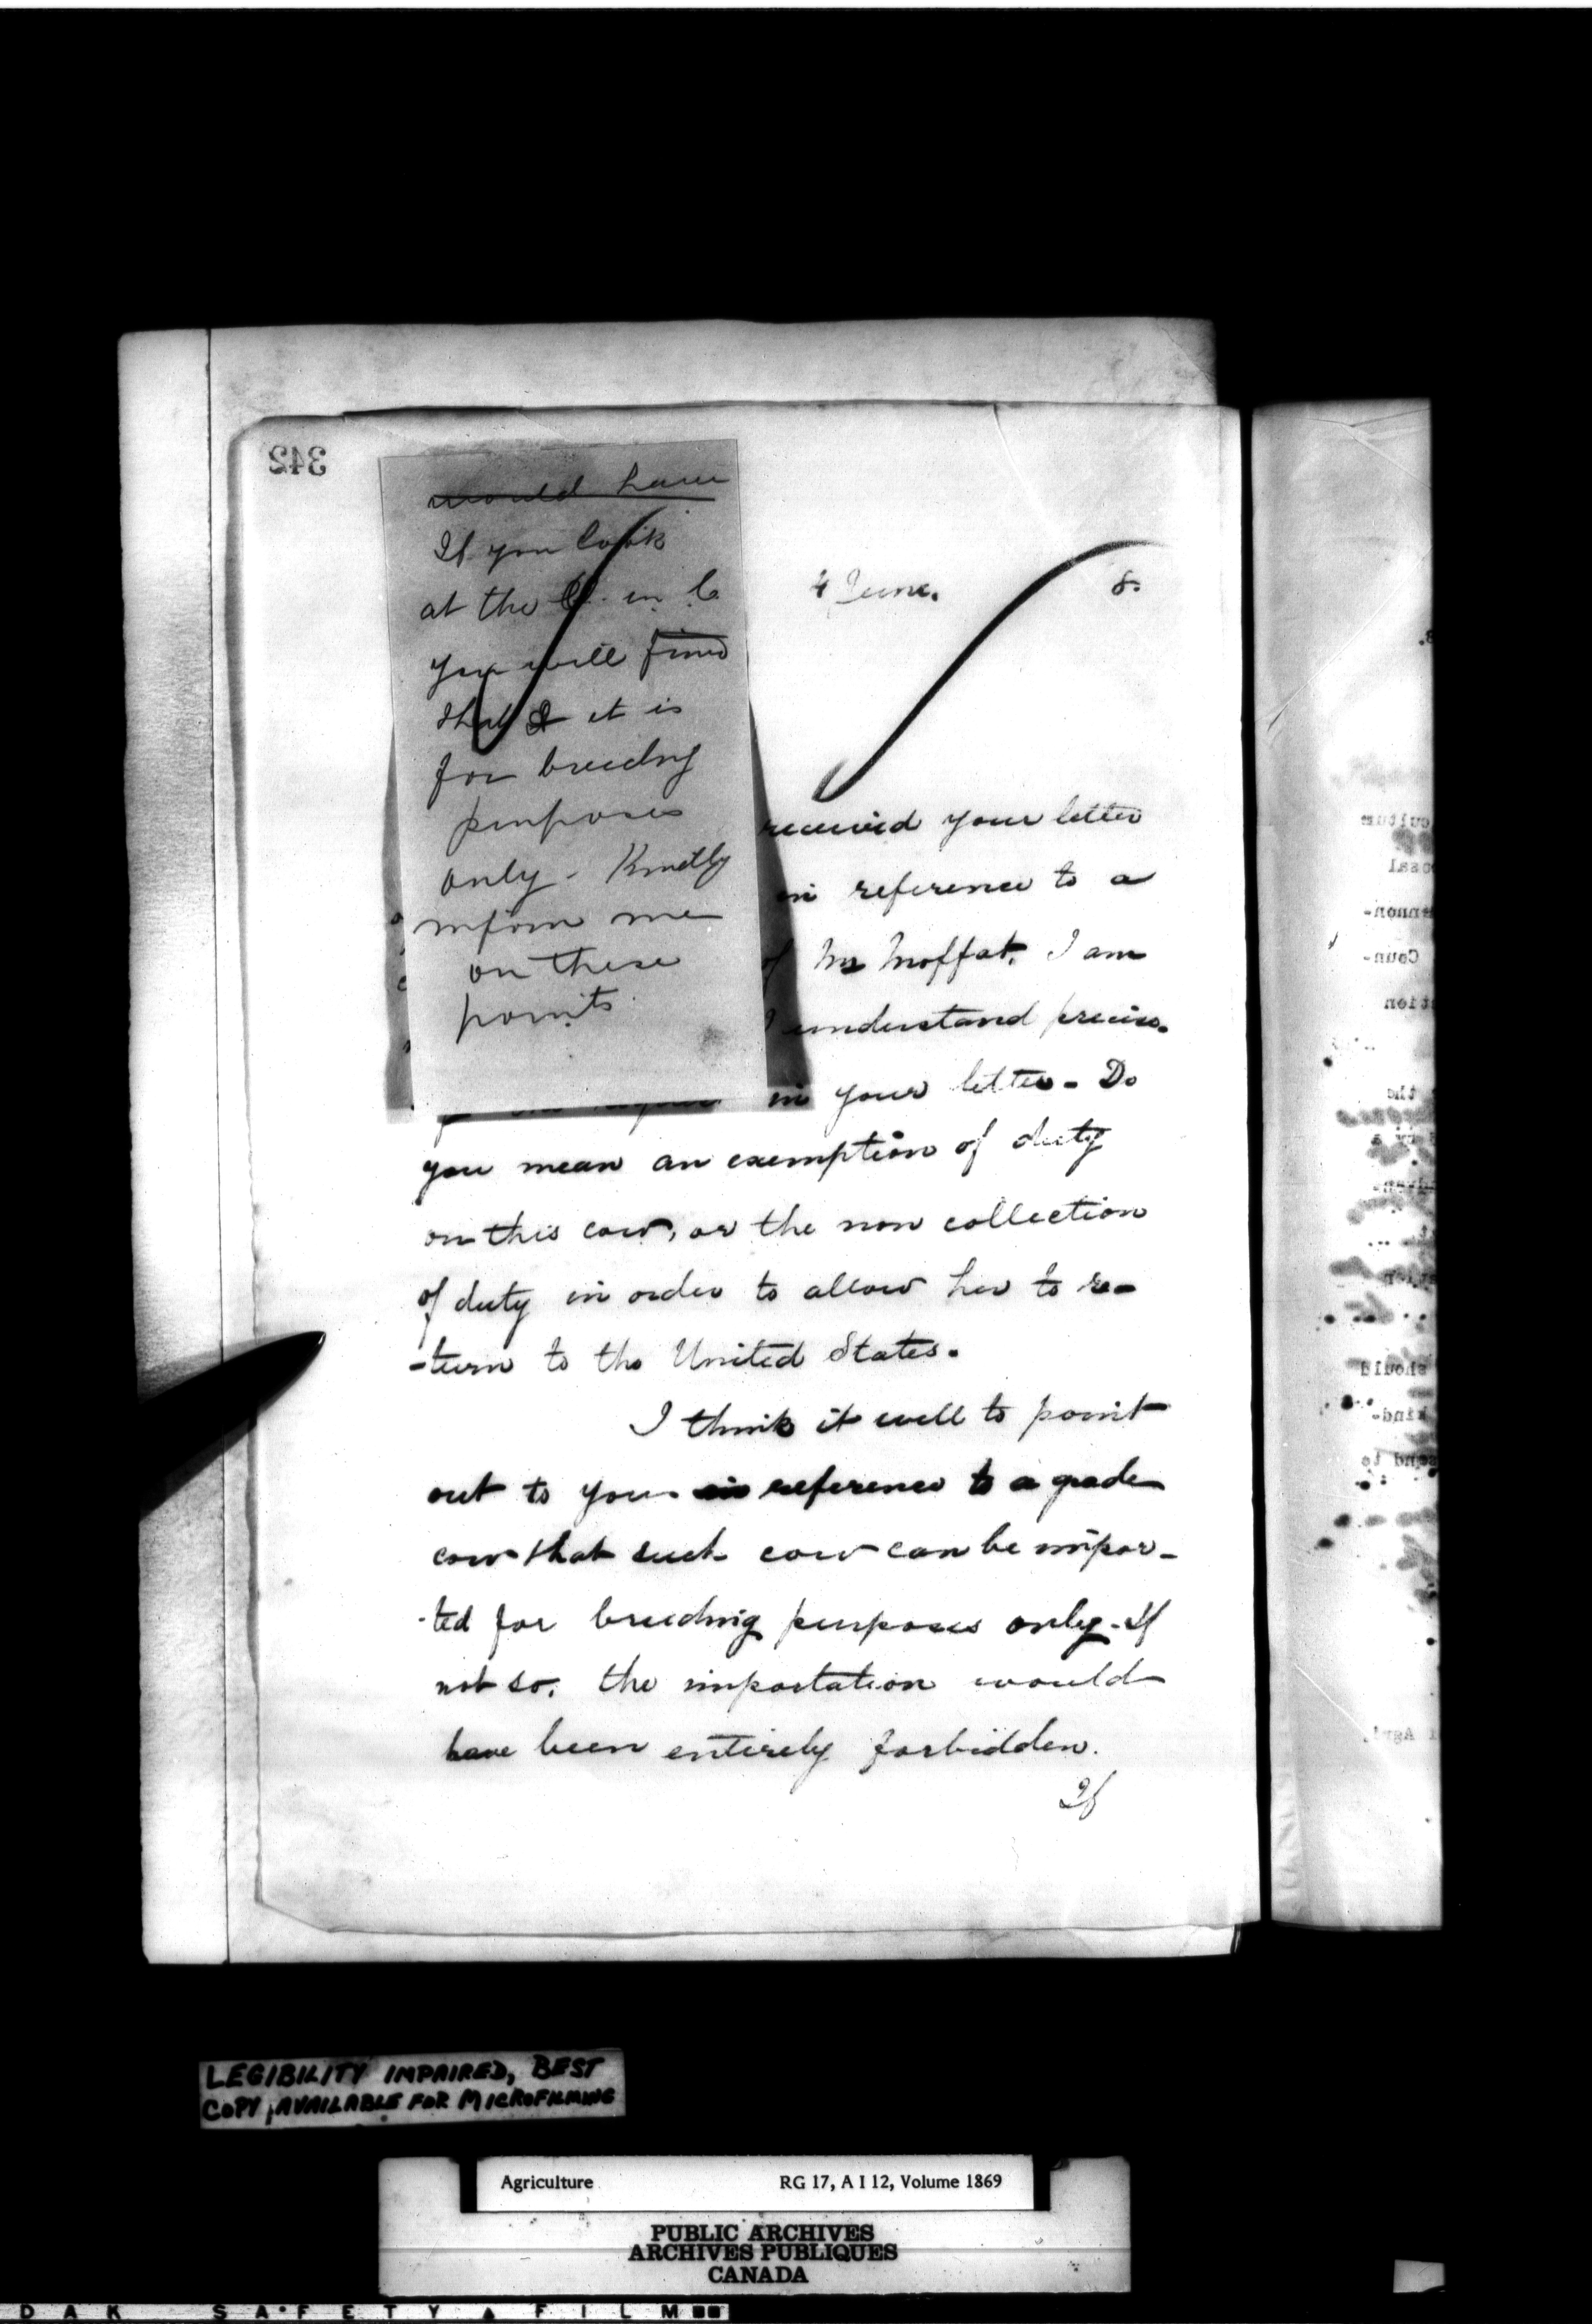 342
would have
If you look
at the O. in C.
you will find
that it is
for breeding
purposes
only - Kindly
inform me
on these
points
4 June.
8.
received your letter
in reference to a
of Mr Moffat. I am
I understand precise-
in your letter - Do
you mean an exemption of duty
on this cow, or the non collection
of duty in order to allow her to re-
-turn to the United States.
I think it well to point
out to you in reference to a grade
cow that such cow can be impor-
-ted for breeding purposes only - If
not so, the importation would
have been entirely forbidden.
If
culture
posal
annon-
Coun-
ation
the
should
kind-
send to
Agri.
LEGIBILITY IMPAIRED, BEST
COPY AVAILABLE FOR MICROFILMING
Agriculture RG 17, A I 12, Volume 1869
PUBLIC ARCHIVES
ARCHIVES PUBLIQUES
CANADA
D A K S A F E T Y ▲ F I L M ■■